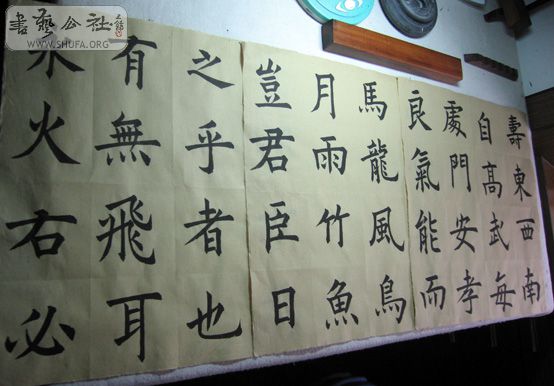 書藝公社
WWW.SHUFA.ORG
壽東西南
自高武每
處門安孝
良氣能而
馬龍風鳥
月雨竹魚
豈君臣日
之乎者也
有無飛耳
火右必